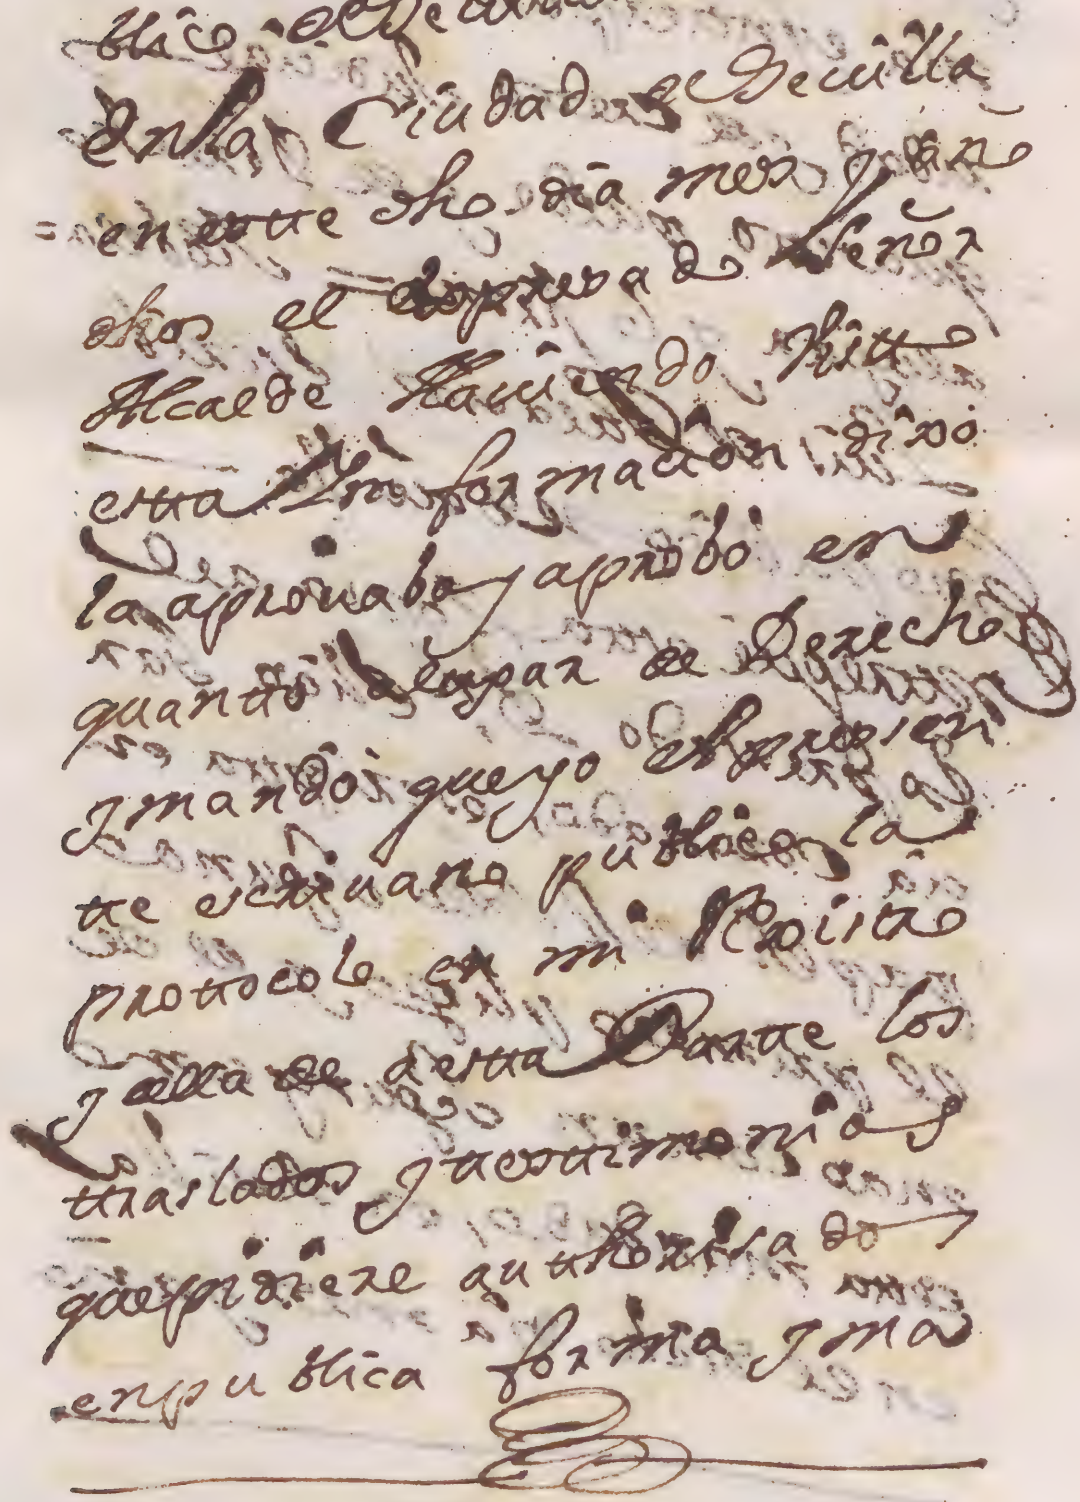 blico de Sevilla
En la Ciudad de Sevilla
en este dho dia mes y año
dhos el expresado Señor
Alcalde haviendo visto
esta Informacion dixo
la aprovaba y aprobó en
quanto â lugar de Derecho
y mandó que yo el presen
te escrivano publico la
protocole en mi Rexistro
y de ella dé a esta Parte los
traslados y testimonios
que pidiere authorisados
en publica forma y ma